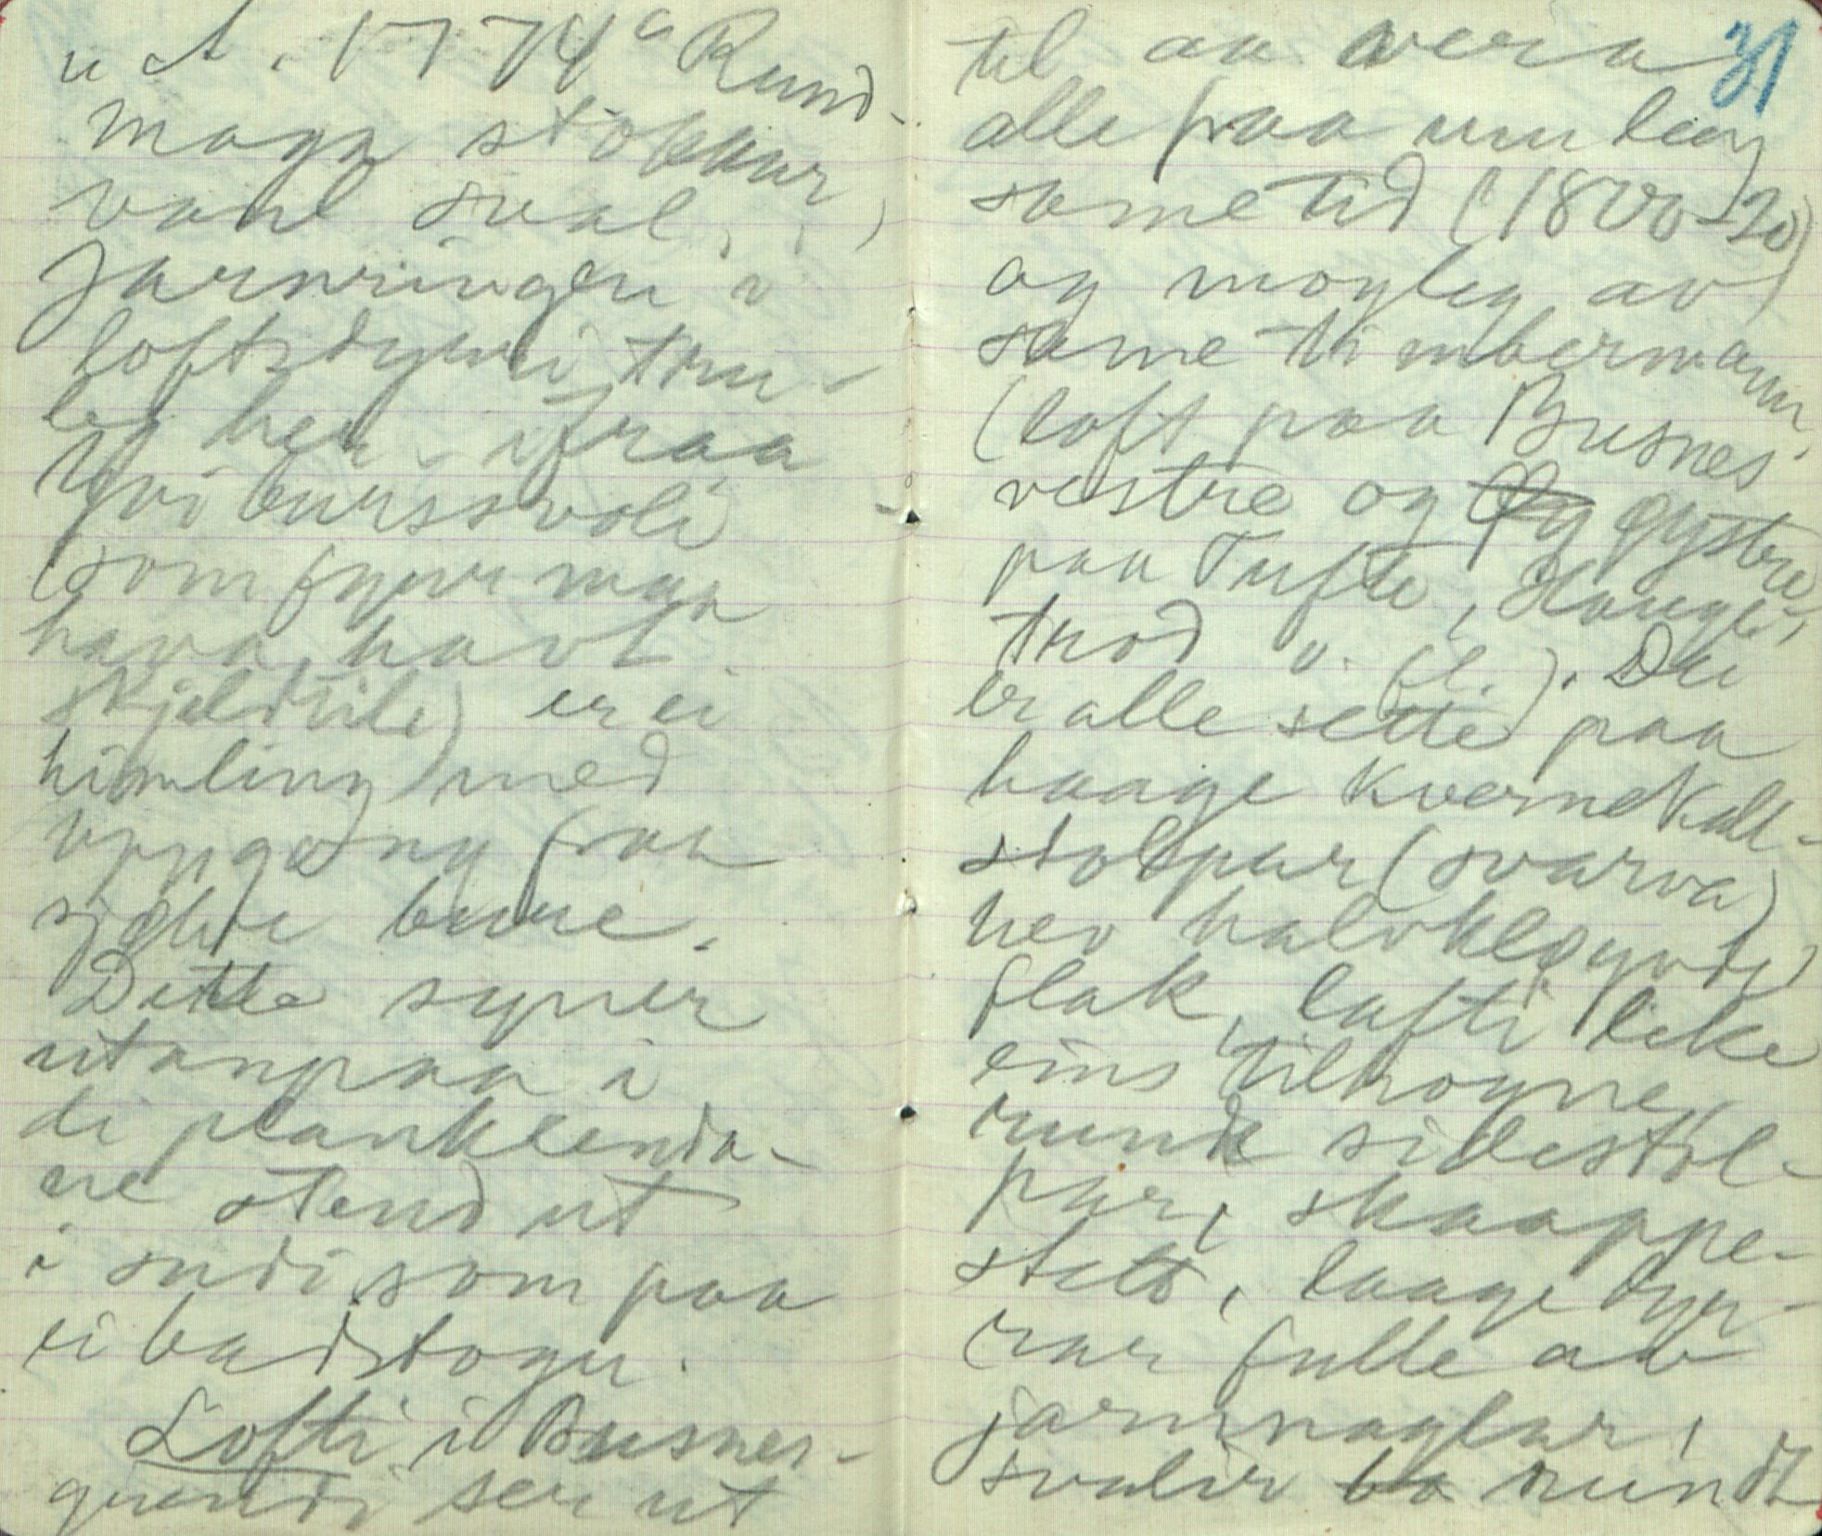 u A. 1774 Rund-
maga stokkar,
vanl sval.
Jarnringen i
loftsdyri tru-
leg her ifraa
Yvi burssvoli
(som fyrr maa
hava havt
skjeldtile) er ei
himling med
uppgang fraa
sjølve bure.
Dette syner
utanpaa i
di plankeenda-
ne stend ut
i sudi som paa
ei badstogu.
Lofti i Busnes-
grendi ser ut
31
til aa vera
alle fraa um leag
same tid (1800-20)
og mogleg av
same timbermann.
(loft paa Busnes
vestre og øystre
paa Tufte, Haugè-
trod o. fl.). Dei
er alle sette paa
haage kvernekall-
stolpar (svarva)
hev halvkløyvde
flak, lafti like
eins tilhogne,
runde sidestol-
par, skaappe-
stett, laage dyr-
rar fulle av
jarnnaglar,
svalir rundt